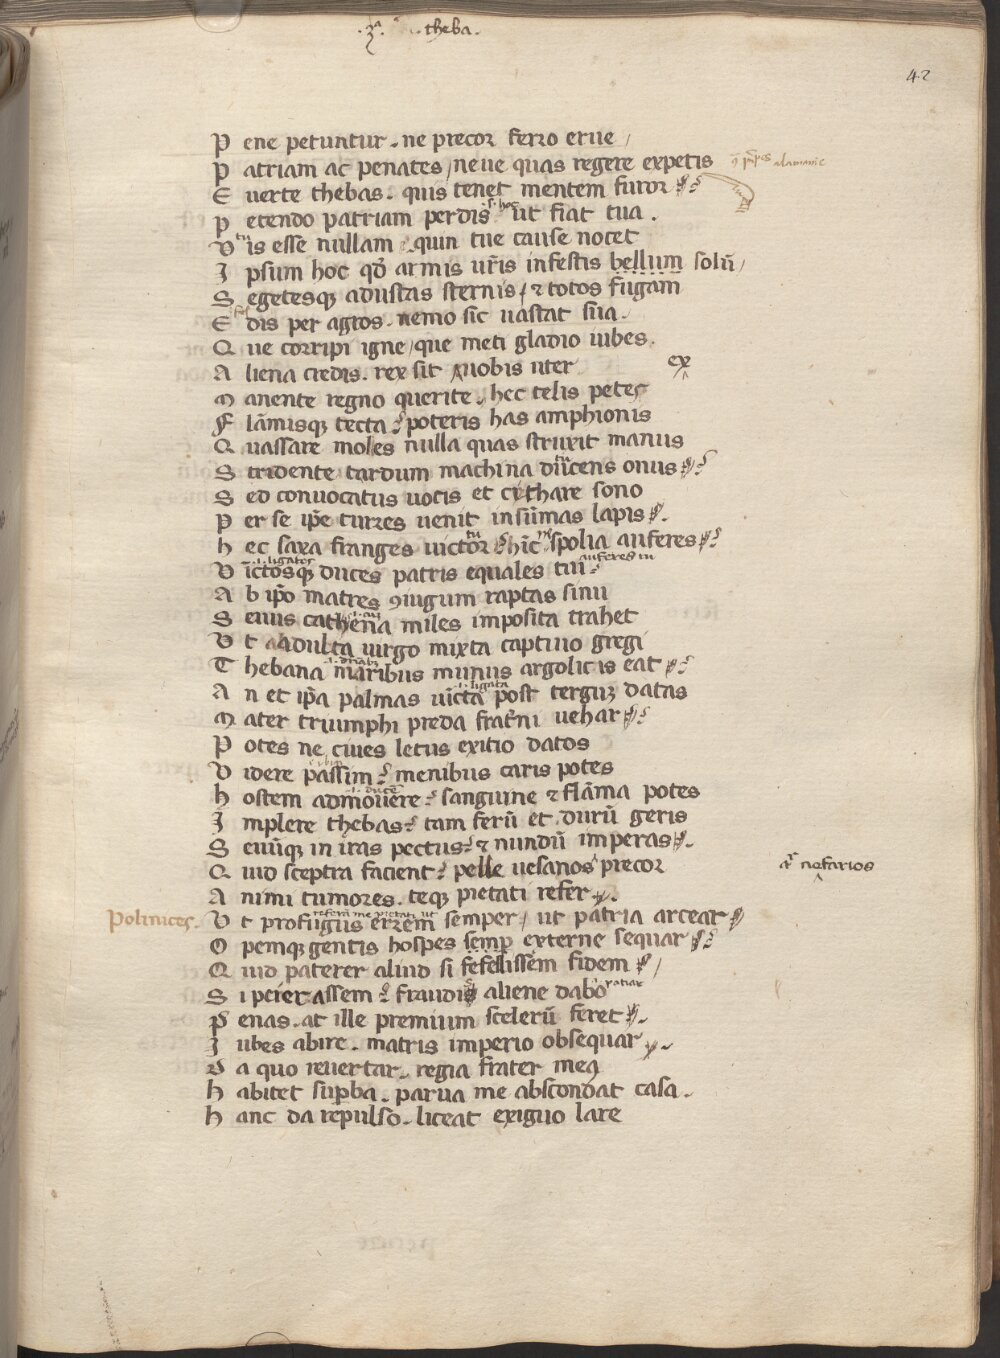 .3ª. theba.
42
P ene petuntur. ne precor ferro erue /
P atriam ac penates / neue quas regere expetis
alamanie
E uerte thebas. quis tenet mentem furor
s. hoc
P etendo patriam perdis ut fiat tua.
tu
V is esse nullam quin tue cause nocet
I psum hoc qđ armis ur̃is infestis bellum solũ /
S egetesqȝ adustas sternis / ⁊ totos fugam
E dis per agros. nemo sic uastat sua.
Q ue corripi igne / que meti gladio iubes.
A liena credis. rex sit uobis uter
ex
M anente regno querite. hec telis petes
F lãmisqȝ tecta poteris has amphionis
Q uassare moles nulla quas struxit manus
S tridente tardum machina ducens onus
S ed conuocatus uocis et cythare sono
P er se ip̃e turres uenit in sũmas lapis
tu
h ec saxa franges uictor hĩc spolia auferes
.i. ligatos auferes tu
V ictosqȝ duces patris equales tui
A b ip̃o matres ꝯiugum raptas sinu
S euus cathena miles imposita trahet
V t adulta uirgo mixta captiuo gregi
T hebana maribus munus argolicis eat
.i. ligata
A n et ip̃a palmas uĩcta post terguȝ datas
M ater triumphi preda frat̃ni uehar
P otes ne ciues letus exitio datos
V idere passim menibus caris potes
.i. ducere
h ostem admouere sanguine ⁊ flãma potes
I mplere thebas tam ferũ et durũ geris
S euũqȝ in iras pectus ⁊ nundũ imperas
Q uid sceptra facient pelle uesanos precor
nefarios
A nimi tumores. teqȝ pietati refer
Polinices.
referã me pietati ut
V t profugus errem semper / ut patria arceat
O pemqȝ gentis hospes semp̱ externe sequar
Q uid paterer aliud si fefellissem fidem
S i peierassem fraudis aliene dabo
P enas. at ille premium scelerũ feret
I ubes abire. matris imperio obsequar
D a quo reuertar. regia frater meꝯ
h abitet suꝑba. parua me abscondat casa.
h anc da repulso. liceat exiguo lare